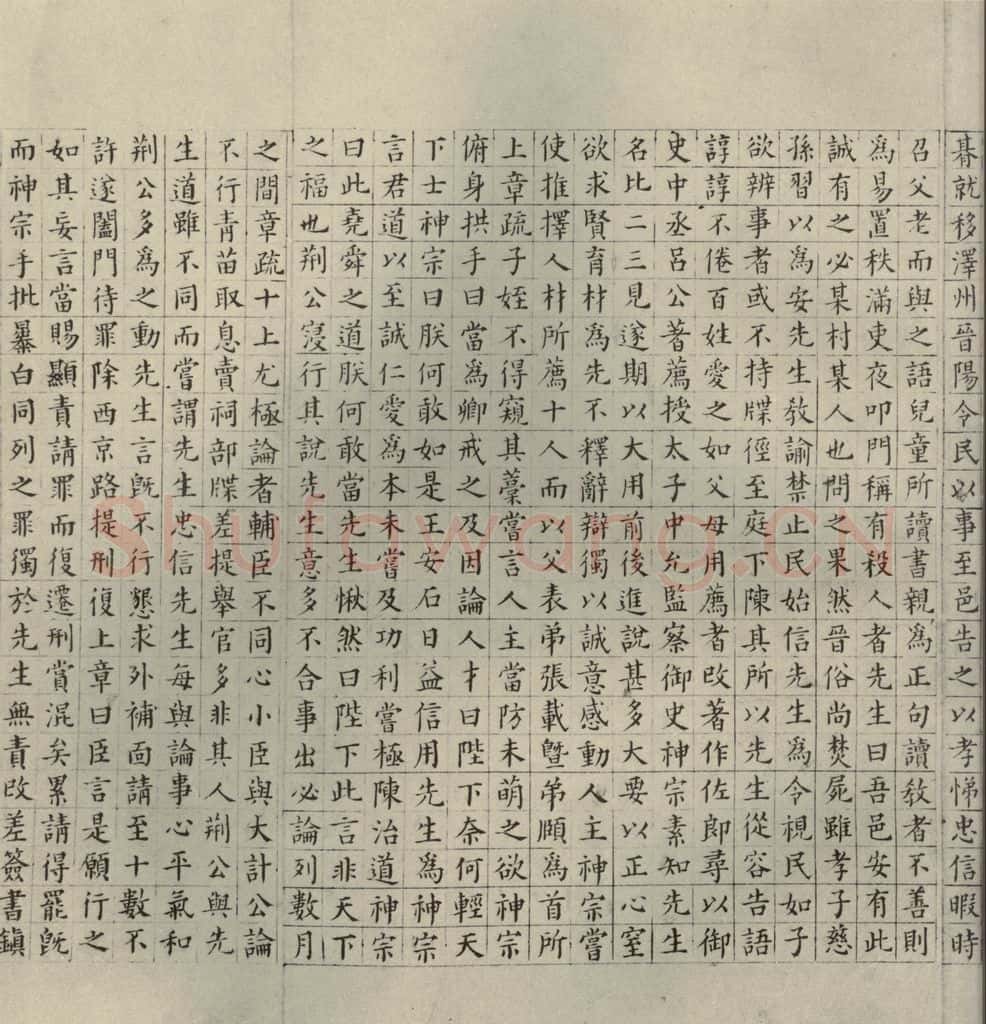 朞就移澤州晉陽令民以事至邑告之以孝悌忠信暇時
召父老而與之語兒童所讀書親為正句讀敎者不善則
為易置秩滿吏夜叩門稱有殺人者先生曰吾邑安有此
誠有之必某村某人也問之果然晉俗尚焚屍雖孝子慈
孫習以為安先生敎諭禁止民始信先生為令視民如子
欲辨事者或不持牒徑至庭下陳其所以先生從容告語
諄諄不倦百姓愛之如父母用薦者改著作佐郎尋以御
史中丞呂公著薦授太子中允監察御史神宗素知先生
名比二三見遂期以大用前後進說甚多大要以正心窒
欲求賢育材為先不釋辭辯獨以誠意感動人主神宗嘗
使推擇人材所薦十人而以父表弟張載暨弟頤為首所
上章疏子姪不得窺其藁嘗言人主當防未萌之欲神宗
俯身拱手曰當為卿戒之及因論人才曰陛下奈何輕天
下士神宗曰朕何敢如是王安石日益信用先生為神宗
言君道以至誠仁愛為本未嘗及功利嘗極陳治道神宗
曰此堯舜之道朕何敢當先生愀然曰陛下此言非天下
之福也荊公寖行其說先生意多不合事出必論列數月
之間章疏十上尤極論者輔臣不同心小臣與大計公論
不行青苗取息賣祠部牒差提舉官多非其人荊公與先
生道雖不同而嘗謂先生忠信先生每與論事心平氣和
荊公多為之動先生言旣不行懇求外補面請至十數不
許遂闔門待罪除西京路提刑復上章曰臣言是願行之
如其妄言當賜顯責請罪而復遷刑賞混矣累請得罷旣
而神宗手批暴白同列之罪獨於先生無責改差簽書鎭
Shufawang.CN